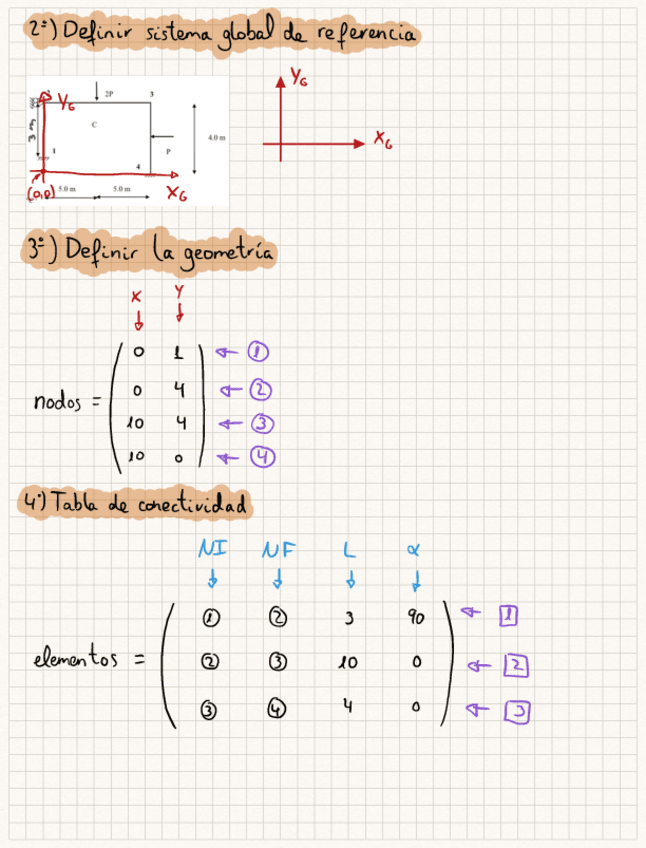 2º) Definir sistema global de referencia
2P
3
Y_G
Y_G
C
3 m
4.0 m
X_G
1
P
4
(0,0)
5.0 m
5.0 m
X_G
3º) Definir la geometría
X Y
0 1 ①
0 4 ②
nodos =
10 4 ③
10 0 ④
4º) Tabla de conectividad
NI NF L α
① ② 3 90 1
elementos = ② ③ 10 0 2
③ ④ 4 0 3